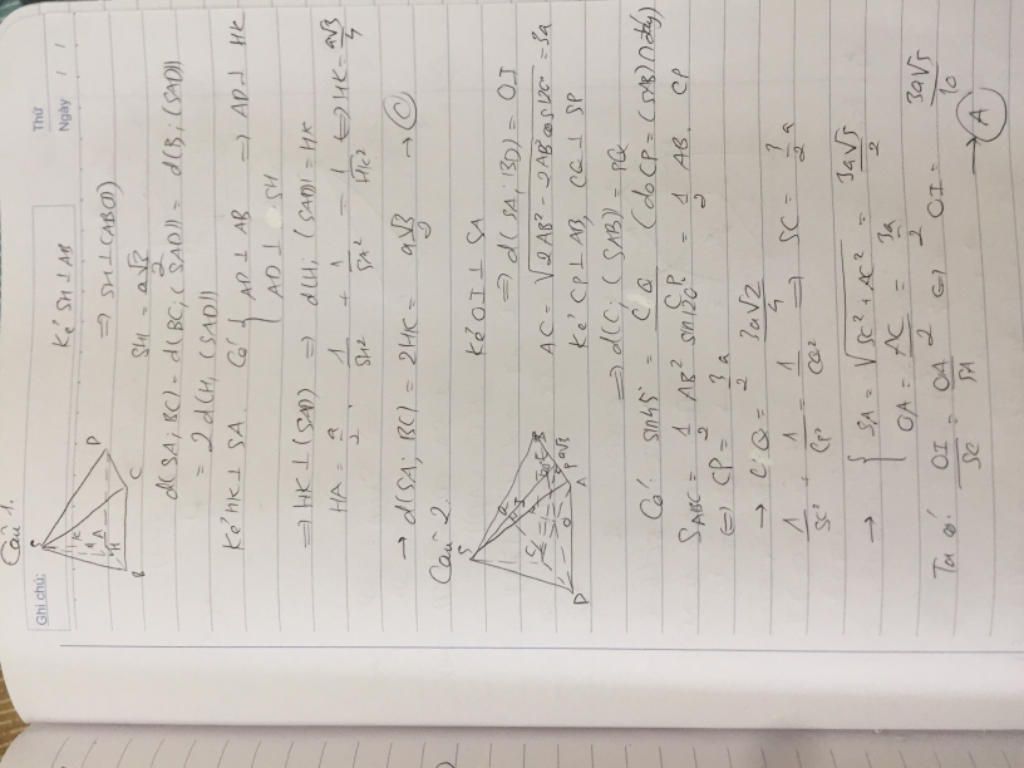 Ghi chú:
Thứ
Ngày / /
Câu 1.
S
K
A
H
B
C
D
Kẻ SH ⊥ AB
=> SH ⊥ (ABCD)
SH = a√3/2
d(SA; BC) = d(BC; (SAD)) = d(B; (SAD))
= 2d(H, (SAD))
Kẻ HK ⊥ SA. Có { AD ⊥ AB
AD ⊥ SH => AD ⊥ HK
=> HK ⊥ (SAD) => d(H; (SAD)) = HK
HA = a/2, 1/SH² + 1/SA² = 1/HK² <=> HK = a√3/4
→ d(SA; BC) = 2HK = a√3/2 → C
Câu 2.
S
D
O
A
P
B
I
Kẻ OI ⊥ SA
=> d(SA; BD) = OI
AC = √(2AB² - 2AB cos120°) = 3a
Kẻ CP ⊥ AB, CQ ⊥ SP
=> d(C; (SAB)) = CQ
Có: sin45° = CQ/CP (do CP = (SAB) ∩ đáy)
S ABC = 1/2 AB² sin120° = 1/2 AB. CP
<=> CP = 3/2 a
→ CQ = 3a√2/4
1/SC² + 1/CP² = 1/CQ² => SC = 3/2 a
→ { SA = √(SC² + AC²) = 3a√5/2
OA = AC/2 = 3a/2
Ta có: OI/SC = OA/SA <=> OI = 3a√5/10
→ A